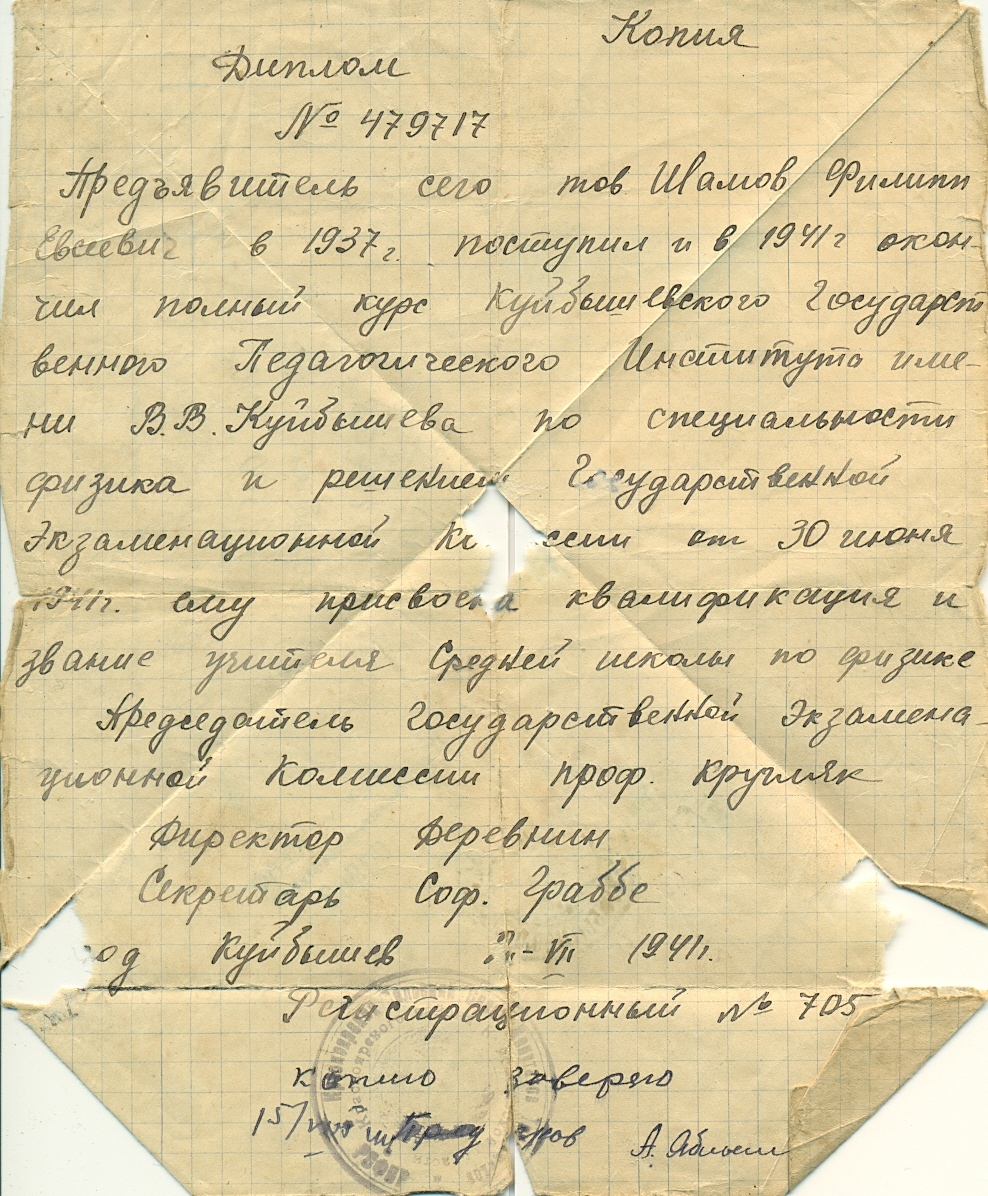 Копия
Диплом
№ 479717
Предъявитель сего тов Шамов Филипп
Евсеевич в 1937г. поступил и в 1941г окон-
чил полный курс Куйбышевского Государст
венного Педагогического Института име-
ни В.В. Куйбышева по специальности
физика и решением Государственной
Экзаменационной Ко ссии от 30 июня
1941г. ему присвоена квалификация и
звание учителя Средней школы по физике
Председатель Государственной Экзамена-
ционной Комиссии проф. Кругляк
Директор Деревнин
Секретарь Соф. Граббе
од Куйбышев -VII 1941г.
Регистрационный № 705
Копию заверяю
15/